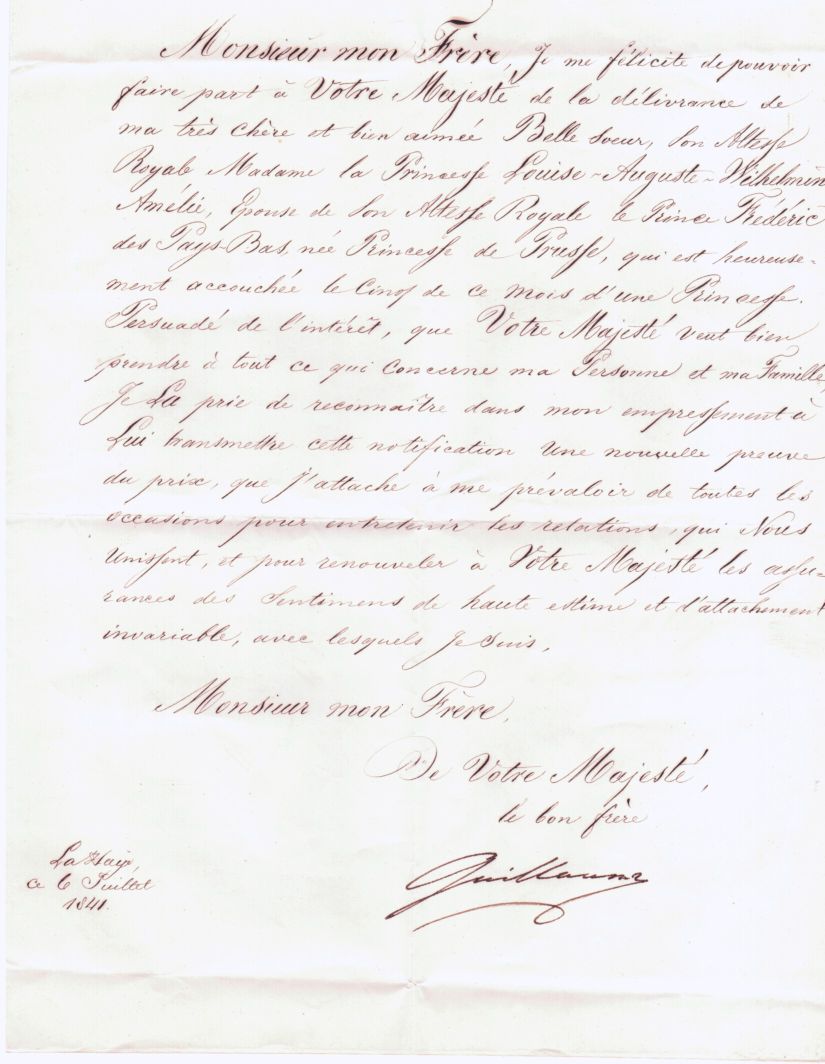 Monsieur mon Frère, Je me félicite de pouvoir
faire part à Votre Majesté de la délivrance de
ma très chère et bien aimée Belle Soeur, Son Altesse
Royale Madame la Princesse Louise-Auguste-Wilhelmin
Amélie, Epouse de Son Altesse Royale le Prince Frédéric
des Pays-Bas, née Princesse de Prusse, qui est heureuse-
ment accouchée le Cinq de ce mois d'une Princesse.
Persuadé de l'intérêt, que Votre Majesté veut bien
prendre à tout ce qui concerne ma Personne et ma Famille,
Je La prie de reconnaître dans mon empressement à
Lui transmettre cette notification Une nouvelle preuve
du prix, que J'attache à me prévaloir de toutes les
occasions pour entretenir les relations, qui Nous
Unissent, et pour renouveler à Votre Majesté les assu-
rances des Sentimens de haute estime et d'attachement
invariable, avec lesquels Je Suis,
Monsieur mon Frère,
De Votre Majesté,
le bon frère
Guillaume
La Haye,
ce 6 Juillet
1841.